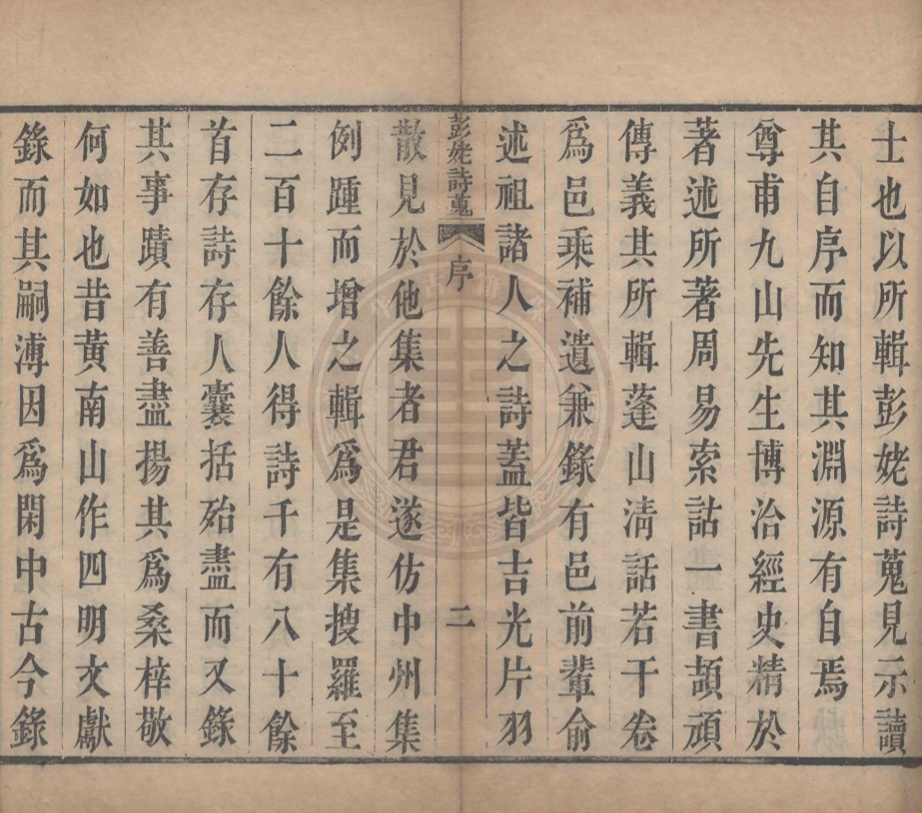 士也以所輯彭姥詩蒐見示讀
其自序而知其淵源有自焉
尊甫九山先生博洽經史精於
著述所著周易索詁一書頡頏
傳義其所輯蓬山清話若干卷
爲邑乘補遺兼錄有邑前輩俞
述祖諸人之詩蓋皆吉光片羽
彭姥詩蒐 序 二
散見於他集者君遂仿中州集
例踵而增之輯爲是集搜羅至
二百十餘人得詩千有八十餘
首存詩存人囊括殆盡而又錄
其事蹟有善盡揚其爲桑梓敬
何如也昔黃南山作四明文獻
錄而其嗣溥因爲閑中古今錄